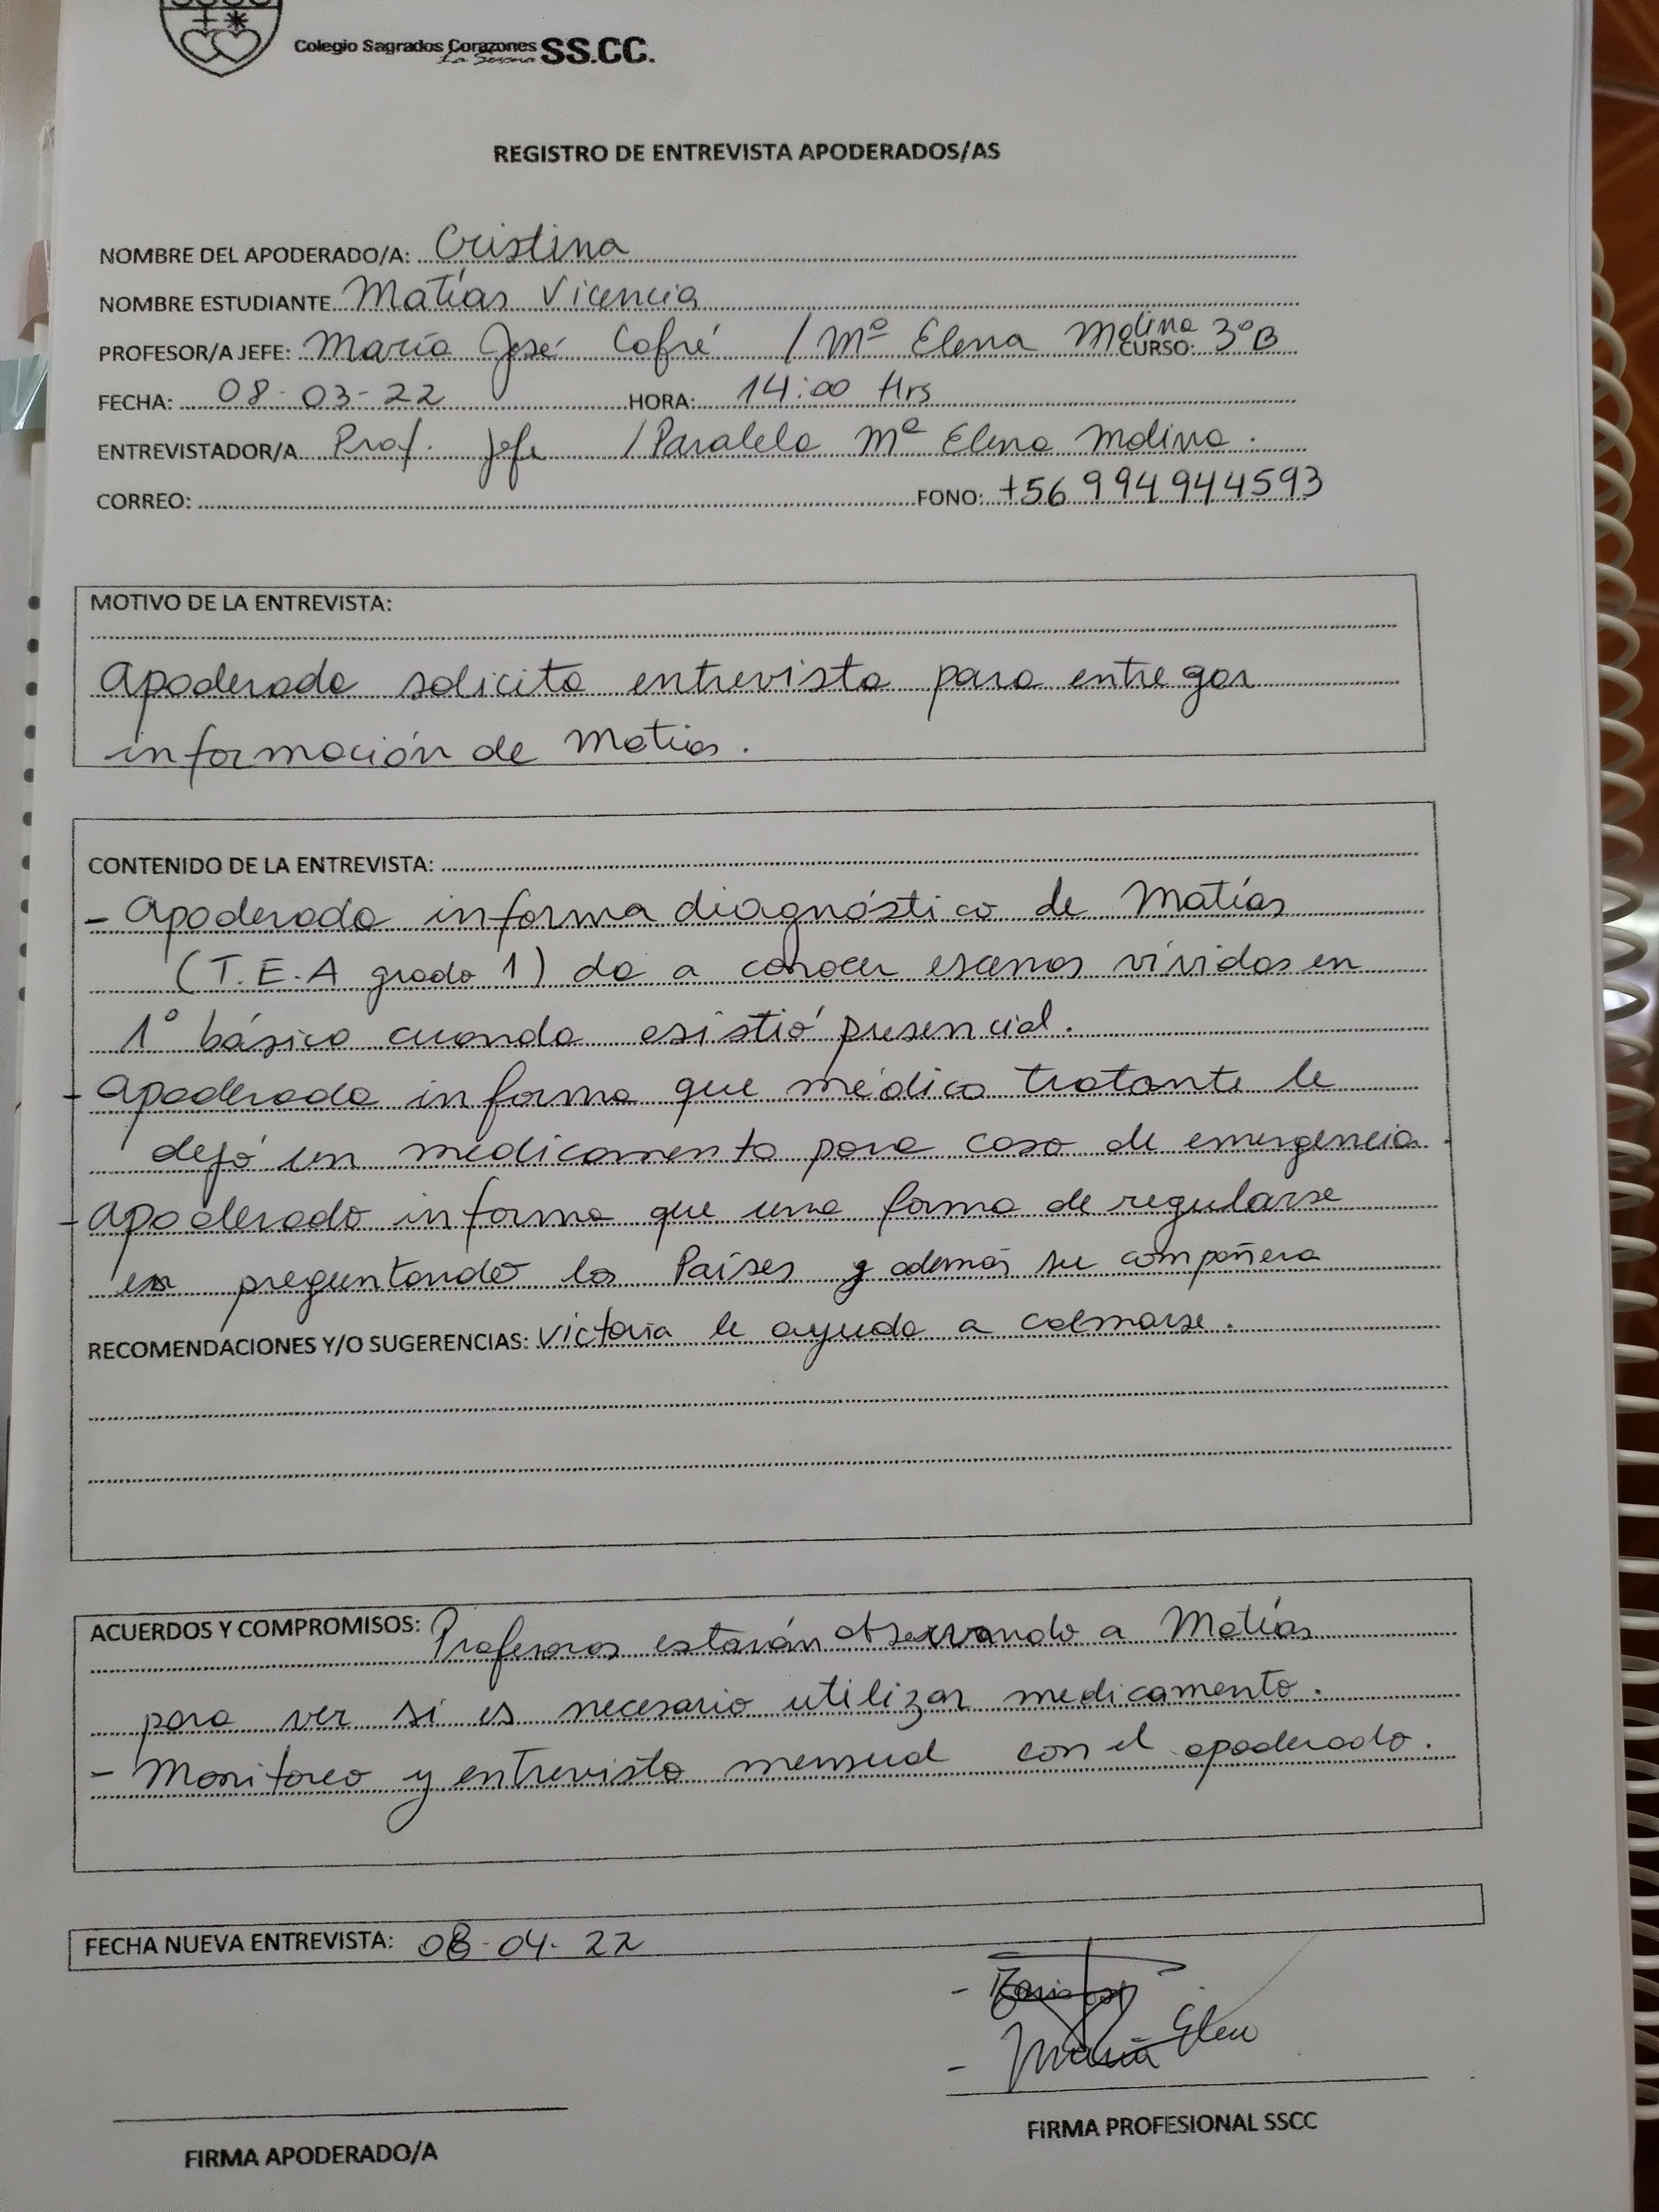 Colegio Sagrados Corazones SS.CC.
La Serena
REGISTRO DE ENTREVISTA APODERADOS/AS
NOMBRE DEL APODERADO/A: Cristina
NOMBRE ESTUDIANTE Matías Vicencia
PROFESOR/A JEFE: María José Cofré / Mª Elena Molina CURSO: 3ºB
FECHA: 08-03-22 HORA: 14:00 Hrs
ENTREVISTADOR/A Prof. Jefe / Paralela Mª Elena Molina.
CORREO: FONO: +56 994944593
MOTIVO DE LA ENTREVISTA:
Apoderada solicita entrevista para entregar
información de Matías.
CONTENIDO DE LA ENTREVISTA:
- Apoderada informa diagnóstico de Matías
(T.E.A grado 1) da a conocer escenas vividas en
1º básico cuando asistió presencial.
- Apoderada informa que médico tratante le
dejó un medicamento para caso de emergencia.
- Apoderado informa que una forma de regularse
es preguntando los Países y además su compañera
RECOMENDACIONES Y/O SUGERENCIAS: Victoria le ayuda a calmarse.
ACUERDOS Y COMPROMISOS: Profesoras estarán observando a Matías
para ver si es necesario utilizar medicamento.
- Monitoreo y entrevista mensual con el apoderado.
FECHA NUEVA ENTREVISTA: 08-04-22
- María Elen
FIRMA APODERADO/A
FIRMA PROFESIONAL SSCC